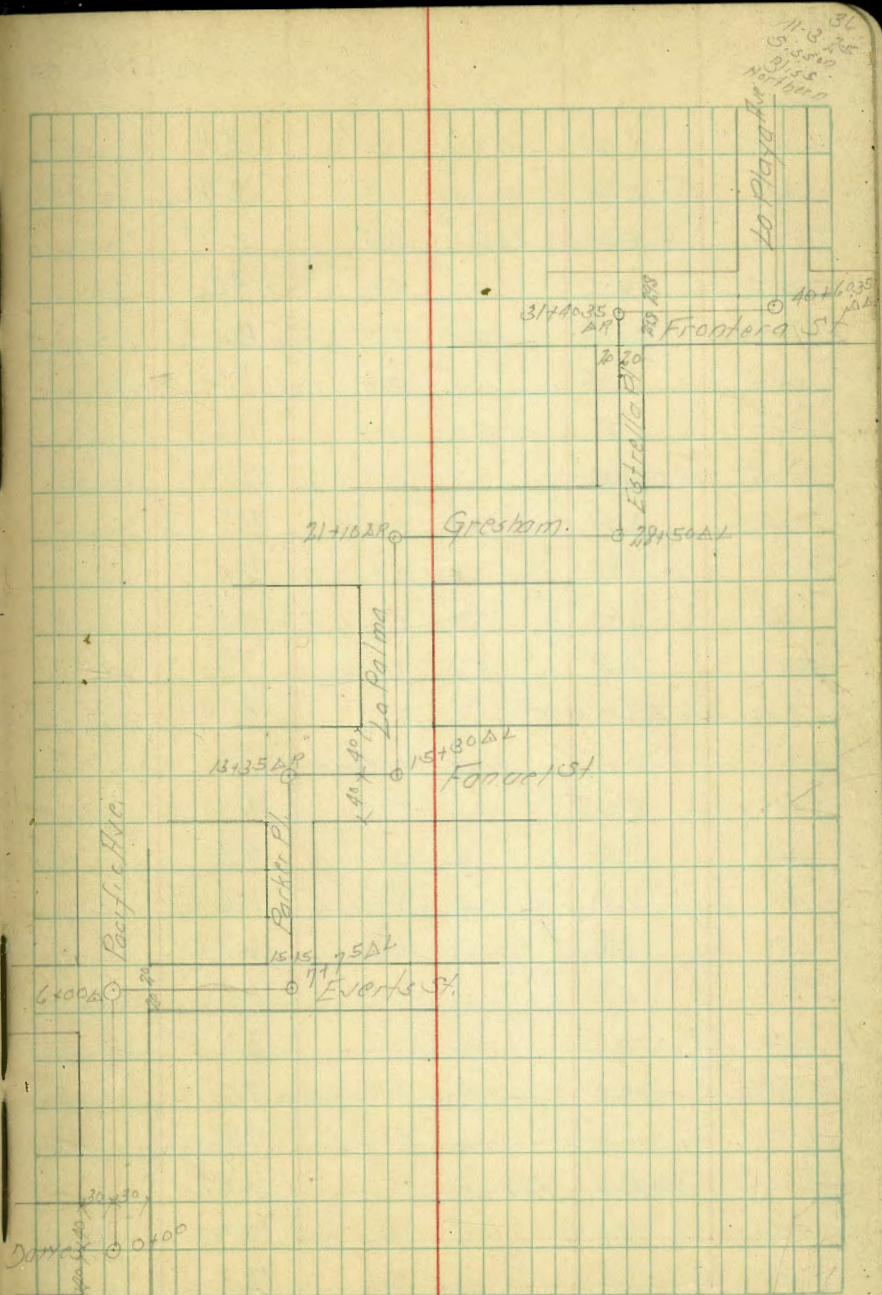 36
11-3-25
Sisson
Bliss
Northern
La Playa Ave
40+60.35
31+40.35
ΔR
29.8 29.8
Frontera St
20 20
Estrella Pl
Gresham.
21+10ΔR
28+50ΔL
La Palma
40 40
15+30ΔL
13+35ΔR
Fanuel St
Pacific Ave.
Parker Pl.
15 15
7+75ΔL
20 20
6+00Δ
Everts St.
30 30
40 40
Dawes
0+00